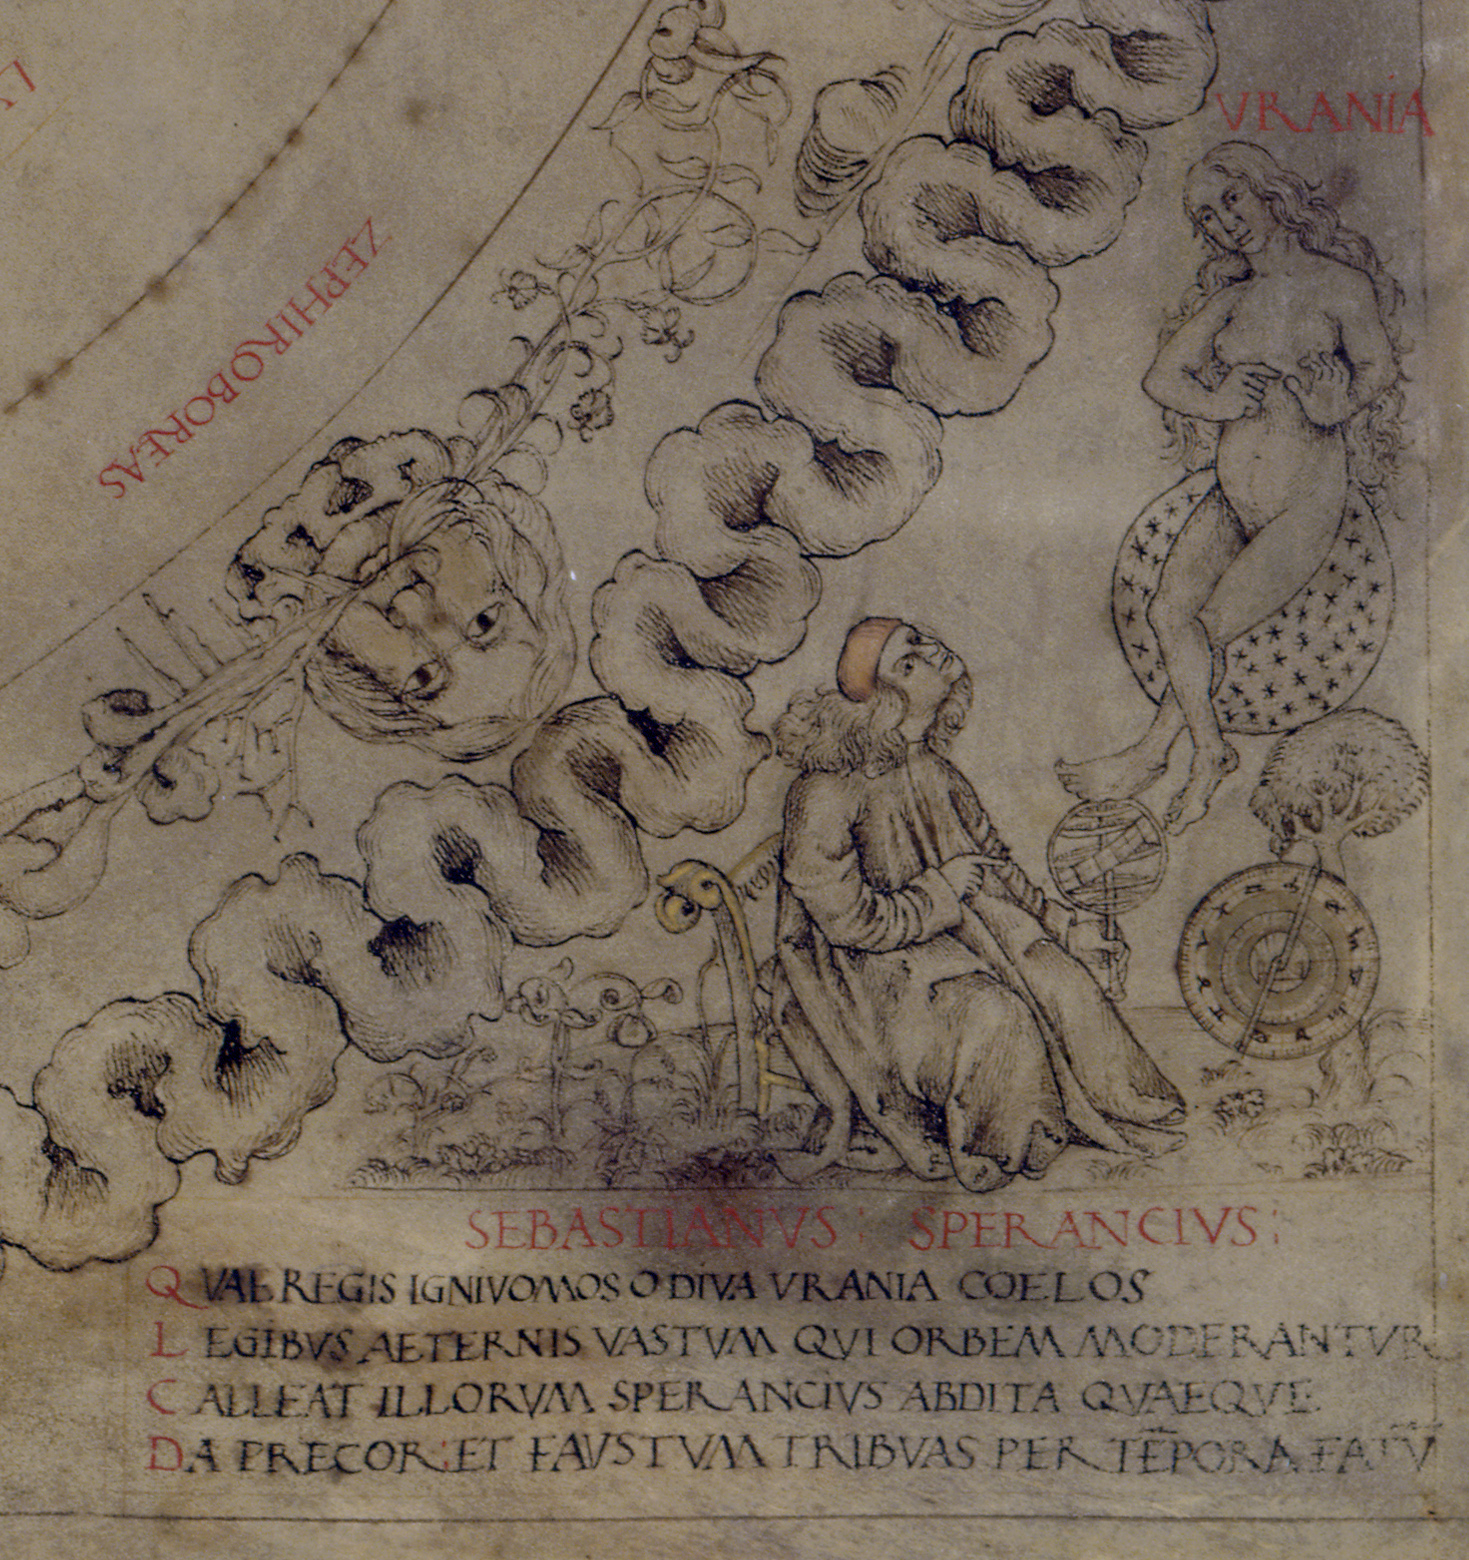 VRANIA
ZEPHIROBOREAS
SEBASTIANVS: SPERANCIVS:
QVAE REGIS IGNIVOMOS O DIVA VRANIA COELOS
LEGIBVS AETERNIS VASTVM QVI ORBEM MODERANTVR
CALLEAT ILLORVM SPERANCIVS ABDITA QVAEQVE
DA PRECOR: ET FAVSTVM TRIBVAS PER TE͞PORA FATV͞